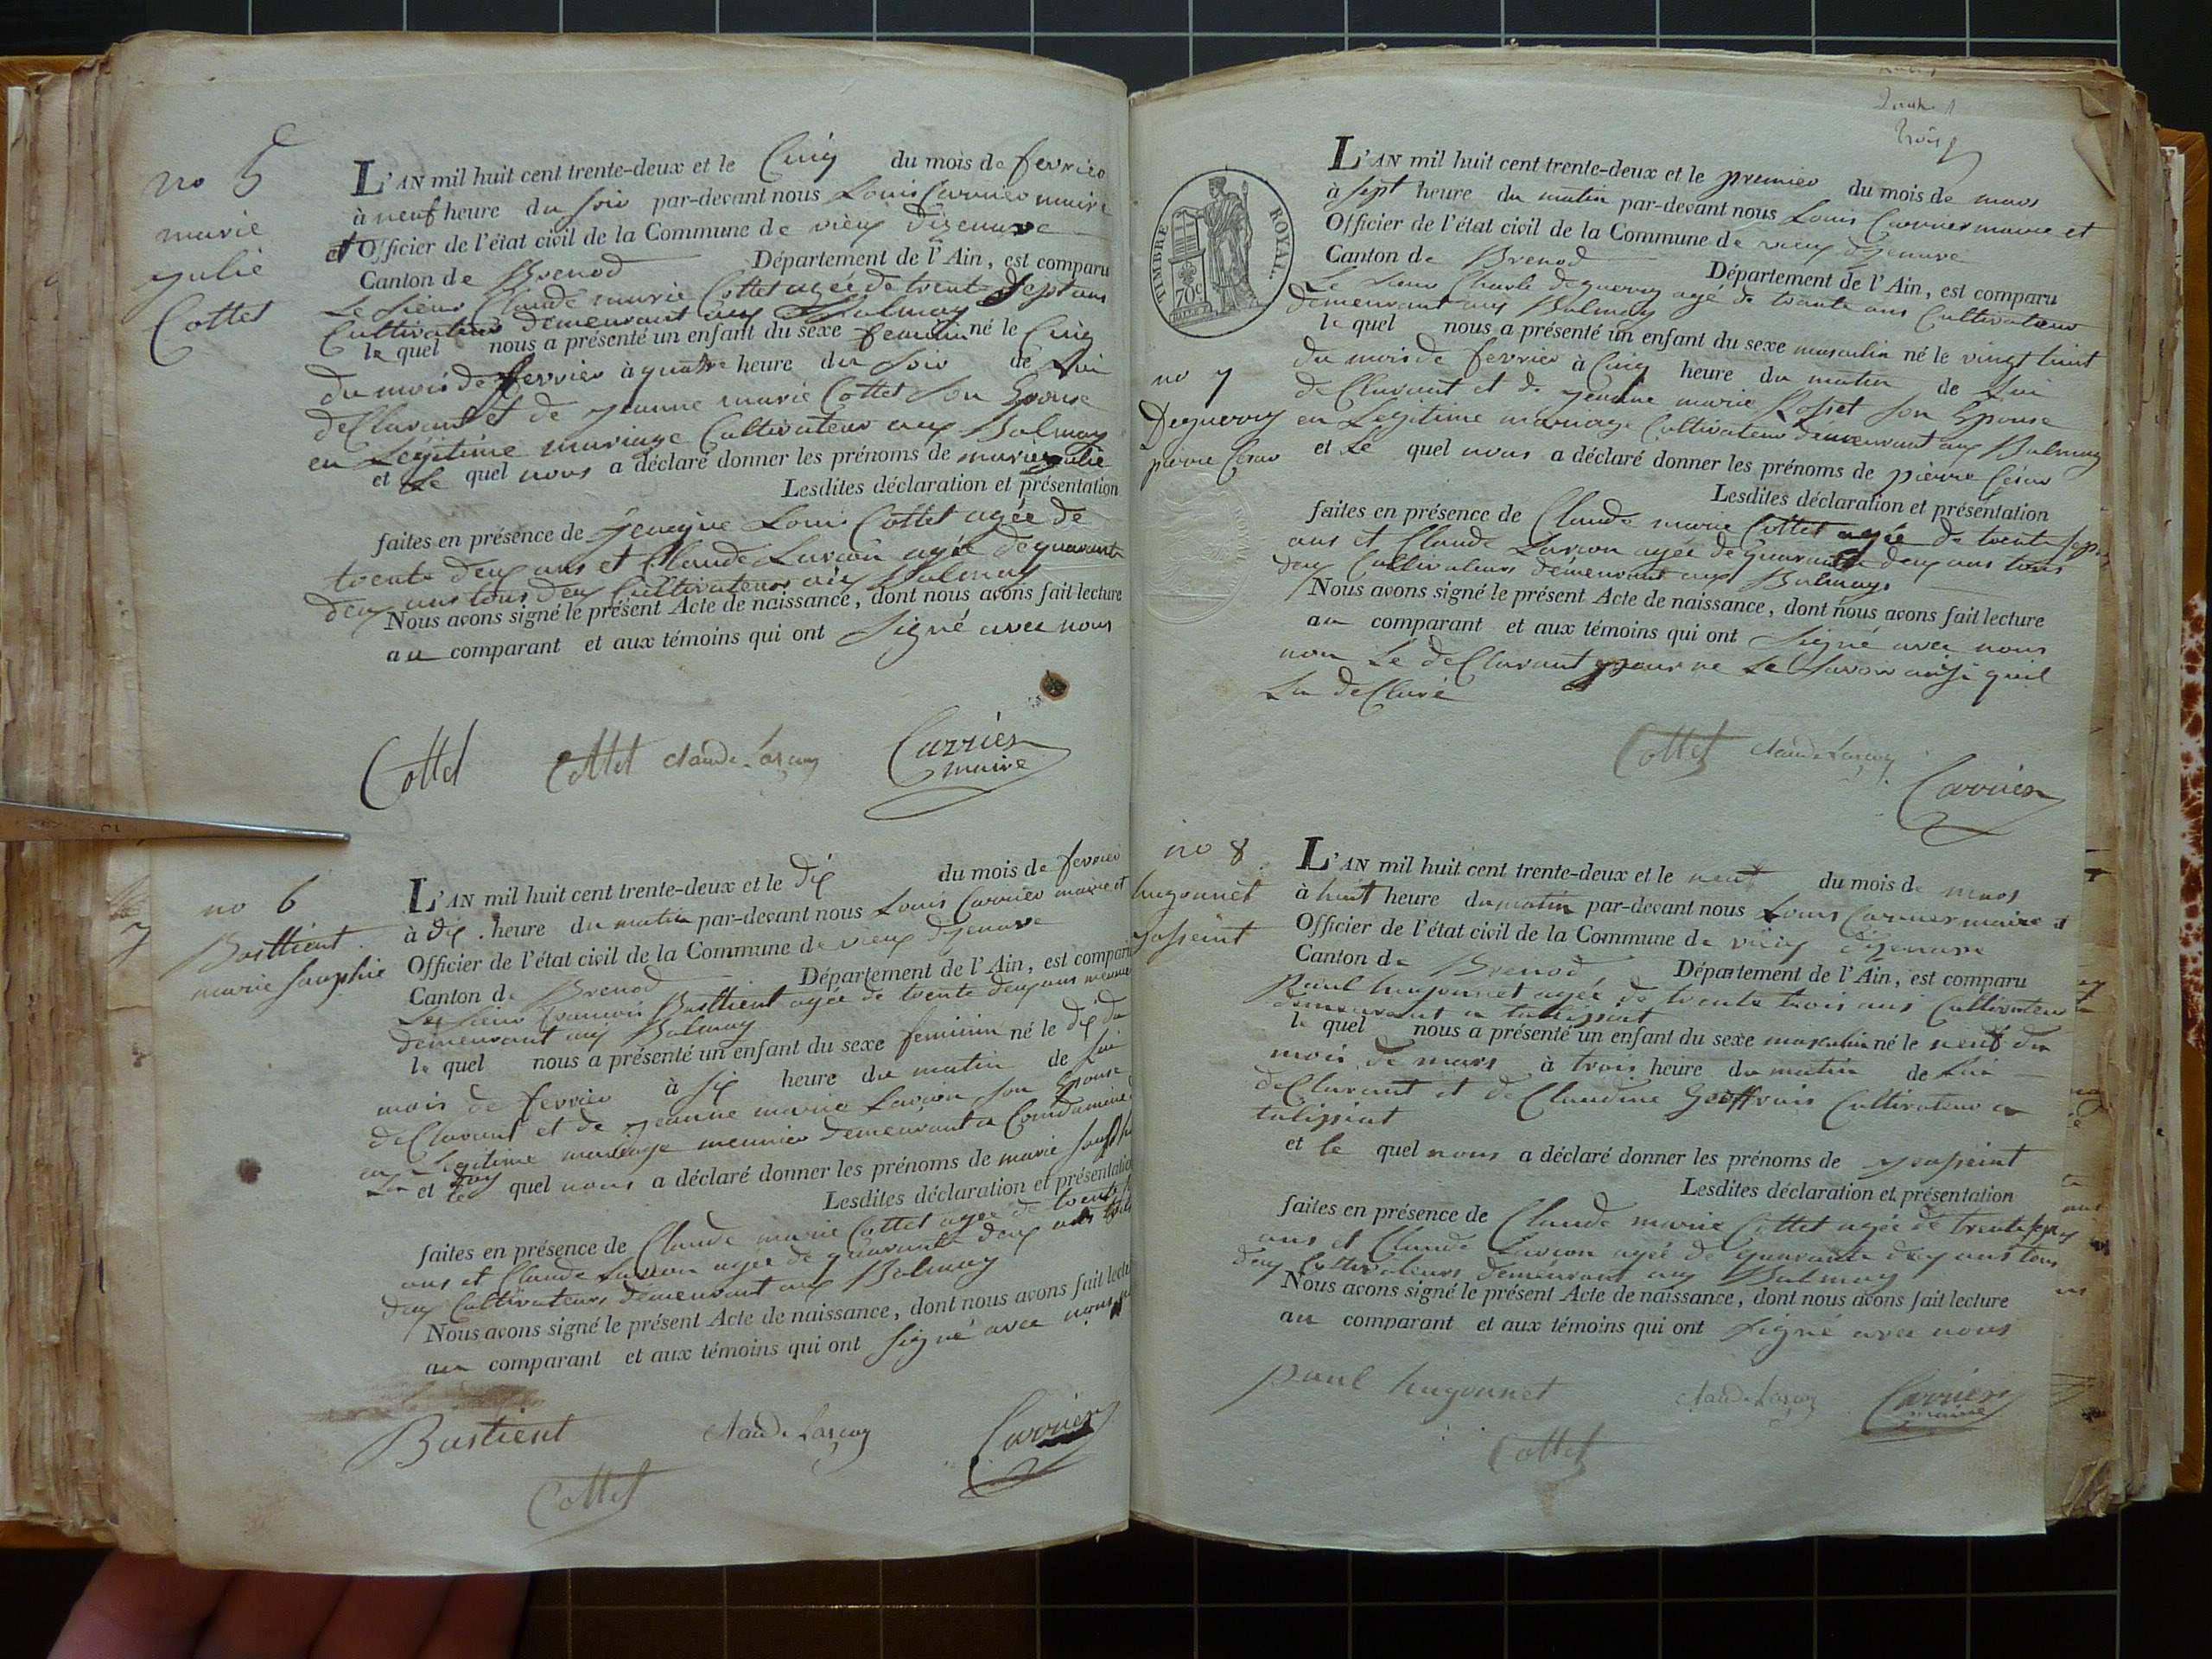 no 5
marie
julie
Cottet
L'AN mil huit cent trente-deux et le Cinq du mois de fevrier
à neuf heure du soir par-devant nous Louis Carrier maire
et Officier de l'état civil de la Commune de vieux dizenave
Canton de Brenod Département de l'Ain, est comparu
Le Sieur Claude marie Cottet agée de trente Sept ans
Cultivateur demeurant aux Balmay
le quel nous a présenté un enfant du sexe feminin né le Cinq
du mois de fevrier à quatre heure du soir de Lui
deClarant et de jeanne marie Cottet Son Epouse
en Légitime mariage Cultivateur aux Balmay
et Le quel nous a déclaré donner les prénoms de marie julie
Lesdites déclaration et présentation
faites en présence de Louis Cottet agée de
trente deux ans et Claude Larçon agée de quarante
deux ans tous deux Cultivateurs aux Balmay
Nous avons signé le présent Acte de naissance, dont nous avons fait lecture
au comparant et aux témoins qui ont Signé avec nous
Cottet Cottet Claude Larçon Carrier
maire
no 6
Basttient
marie Sauphie
L'AN mil huit cent trente-deux et le dix du mois de fevrier
à dix heure du matin par-devant nous Louis Carrier maire et
Officier de l'état civil de la Commune de vieux dizenave
Canton de Brenod Département de l'Ain, est comparu
Le Sieur francois Basttient agée de trente deux ans meunier
demeurant aux Balmay
le quel nous a présenté un enfant du sexe feminin né le dix du
mois de fevrier à six heure du matin de Lui
deClarant et de jeanne marie Larçon Son Epouse
en Legitime mariage meunier demeurant a Condamine
et le quel nous a déclaré donner les prénoms de marie
Lesdites déclaration et présentation
faites en présence de Claude marie Cottet agée de trente
ans et Claude Larçon agée de quarante deux ans tous
deux Cultivateurs demeurant aux Balmay
Nous avons signé le présent Acte de naissance, dont nous avons fait lecture
au comparant et aux témoins qui ont Signé avec nous
Bastient Claude Larçon Carrier
Cottet
trois
TIMBRE ROYAL
70c
L'AN mil huit cent trente-deux et le premier du mois de mars
à sept heure du matin par-devant nous Louis Carrier maire et
Officier de l'état civil de la Commune de vieux dizenave
Canton de Brenod Département de l'Ain, est comparu
Le Sieur Charle deguerry agé de trante ans Cultivateur
demeurant aux Balmay
le quel nous a présenté un enfant du sexe masculin né le vingt huit
du mois de fevrier à Cinq heure du matin de Lui
no 7
Deguerry
pierre Cesar
deClarant et de jeanne marie Rosset Son Epouse
en Legitime mariage Cultivateur demeurant aux Balmay
et Le quel nous a déclaré donner les prénoms de pierre Cesar
Lesdites déclaration et présentation
faites en présence de Claude marie Cottet agée de trente sept
ans et Claude Larçon agée de quarante deux ans tous
deux Cultivateurs demeurant aux Balmays
Nous avons signé le présent Acte de naissance, dont nous avons fait lecture
au comparant et aux témoins qui ont Signé avec nous
non Le deClarant pour ne Le Savoir ainsi quil
La deClaré
Cottet Claude Larçon
Carrier
no 8
hugonnet
jasseint
L'AN mil huit cent trente-deux et le neuf du mois de mars
à huit heure du matin par-devant nous Louis Carrier maire et
Officier de l'état civil de la Commune de vieux dizenave
Canton de Brenod Département de l'Ain, est comparu
Paul hugonnet agée de trente trois ans Cultivateur
demeurant a talissiat
le quel nous a présenté un enfant du sexe masculin né le neuf du
mois de mars à trois heure du matin de Lui
deClarant et de Claudine Geoffrais Cultivateur a
talissiat
et le quel nous a déclaré donner les prénoms de jasseint
Lesdites déclaration et présentation
faites en présence de Claude marie Cottet agée de trente sept
ans et Claude Larçon agée de quarante deux ans tous
deux Cultivateurs demeurant aux Balmay
Nous avons signé le présent Acte de naissance, dont nous avons fait lecture
au comparant et aux témoins qui ont Signé avec nous
paul hugonnet Claude Larçon Carrier
maire
Cottet